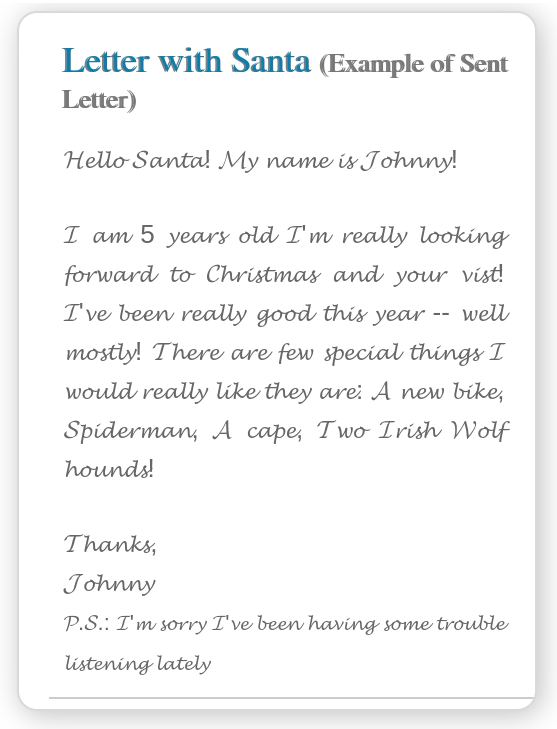 Letter with Santa (Example of Sent
Letter)
Hello Santa! My name is Johnny!
I am 5 years old I'm really looking
forward to Christmas and your vist!
I've been really good this year -- well
mostly! There are few special things I
would really like they are: A new bike,
Spiderman, A cape, Two Irish Wolf
hounds!
Thanks,
Johnny
P.S.: I'm sorry I've been having some trouble
listening lately